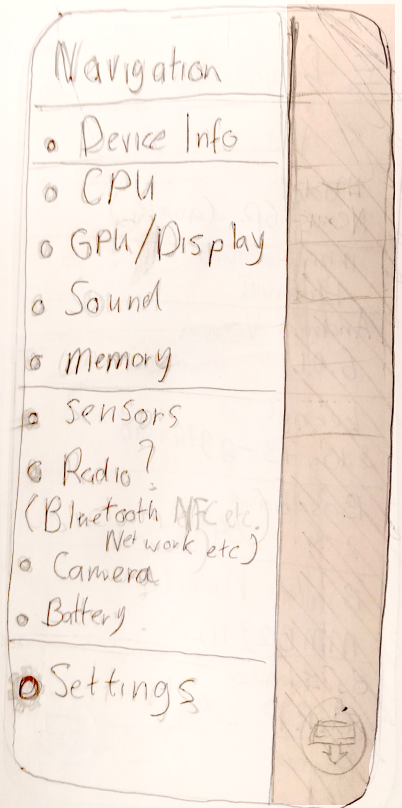 Navigation
Device Info
CPU
GPU/Display
Sound
Memory
Sensors
Radio?
(Bluetooth NFC etc.
Network etc)
Camera
Battery
Settings